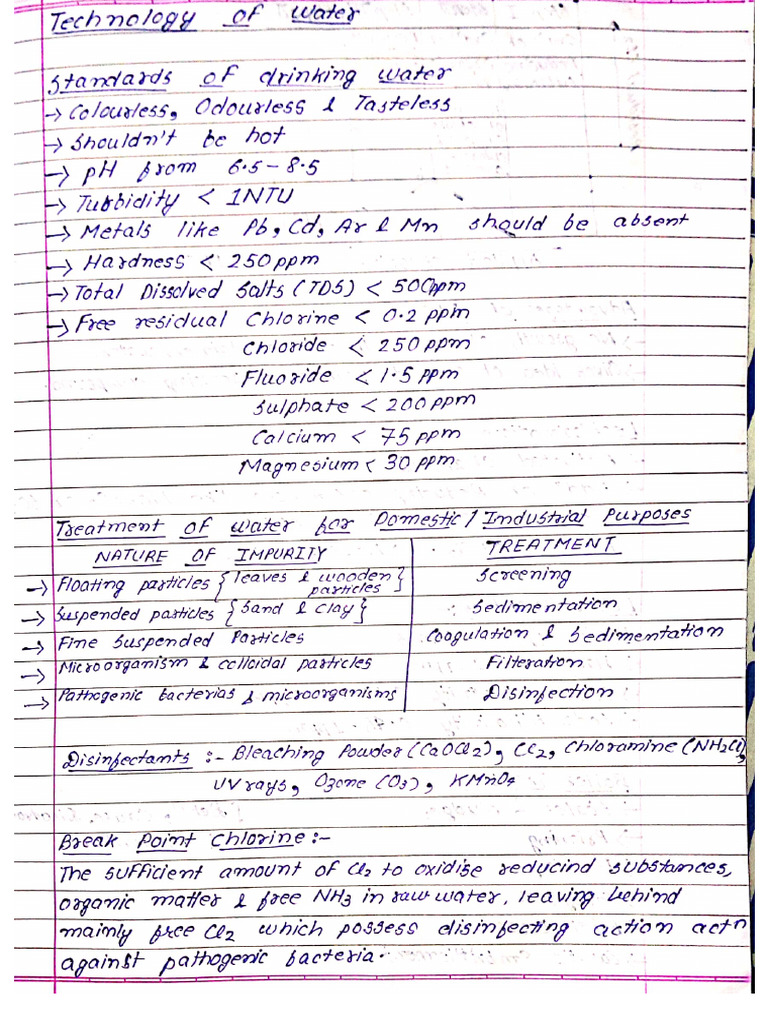 Technology of water
Standards of drinking water
→ Colourless, Odourless & Tasteless
→ Shouldn't be hot
→ pH from 6.5 – 8.5
→ Turbidity < 1NTU
→ Metals like Pb, Cd, Ar & Mn should be absent
→ Hardness < 250 ppm
→ Total Dissolved Salts (TDS) < 500ppm
→ Free residual Chlorine < 0.2 ppm
Chloride < 250 ppm
Fluoride < 1.5 ppm
Sulphate < 200 ppm
Calcium < 75 ppm
Magnesium < 30 ppm
Treatment of water for Domestic / Industrial Purposes
NATURE OF IMPURITY TREATMENT
→ Floating particles {leaves & wooden particles} Screening
→ Suspended particles {Sand & clay} Sedimentation
→ Fine Suspended Particles Coagulation & Sedimentation
→ Microorganism & colloidal particles Filteration
→ Pathogenic bacterias & microorganisms Disinfection
Disinfectants :- Bleaching Powder (CaOCl2), Cl2, Chloramine (NH2Cl),
UV rays, Ozone (O3), KMnO4
Break Point Chlorine :-
The sufficient amount of Cl2 to oxidise reducind substances,
organic matter & free NH3 in raw water, leaving behind
mainly free Cl2 which possess disinfecting action actn
against pathogenic bacteria.